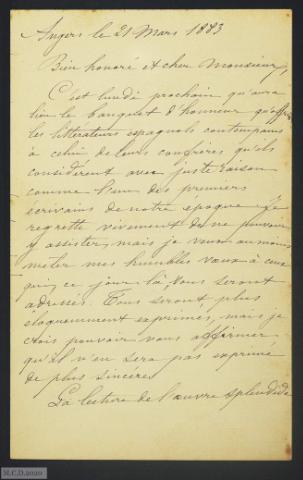 Angers le 21 Mars 1883
Bien honoré et cher Monsieur,
C'est lundi prochain qu'aura
lieu le banquet d'honneur qu'offrent
les littérateurs espagnols contemporains
à celui de leurs confrères qu'ils
considèrent avec juste raison
comme l'un des premiers
écrivains de notre époque. Je
regrette vivement de ne pouvoir
y assister, mais je veux au moins
mêler mes humbles vœux à ceux
qui, ce jour là, vous seront
adressés. Tous seront plus
éloquemment exprimés, mais je
crois pouvoir vous affirmer
qu'il n'en sera pas exprimé
de plus sincères
La lecture de l'œuvre splendide
M.C.D.2020